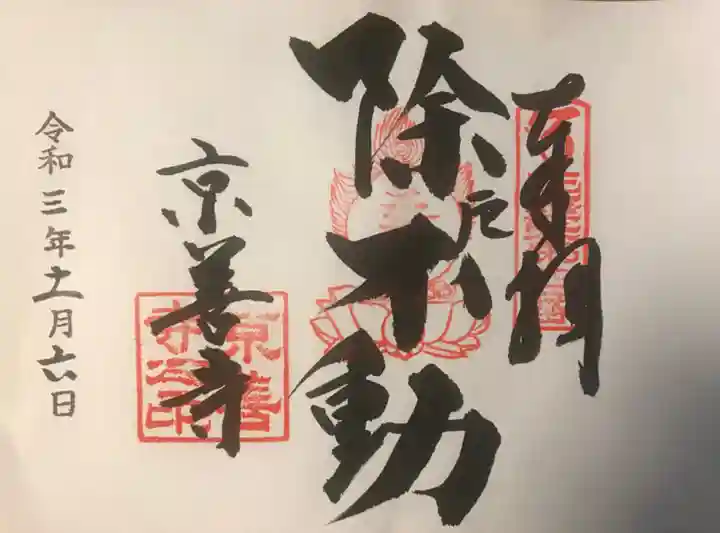 奉拝
除厄不動
京善寺
京善寺之印
令和三年十一月六日